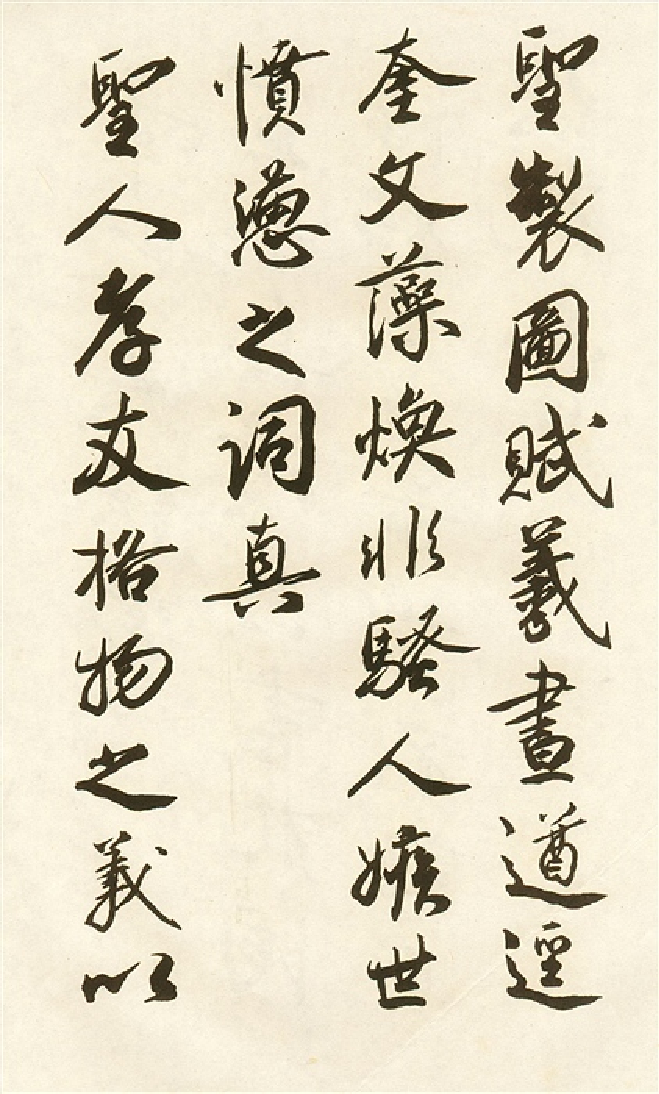 聖製圖賦羲畫遒逕
奎文藻煥非騷人嫉世
憤懣之詞真
聖人孝友格物之義以